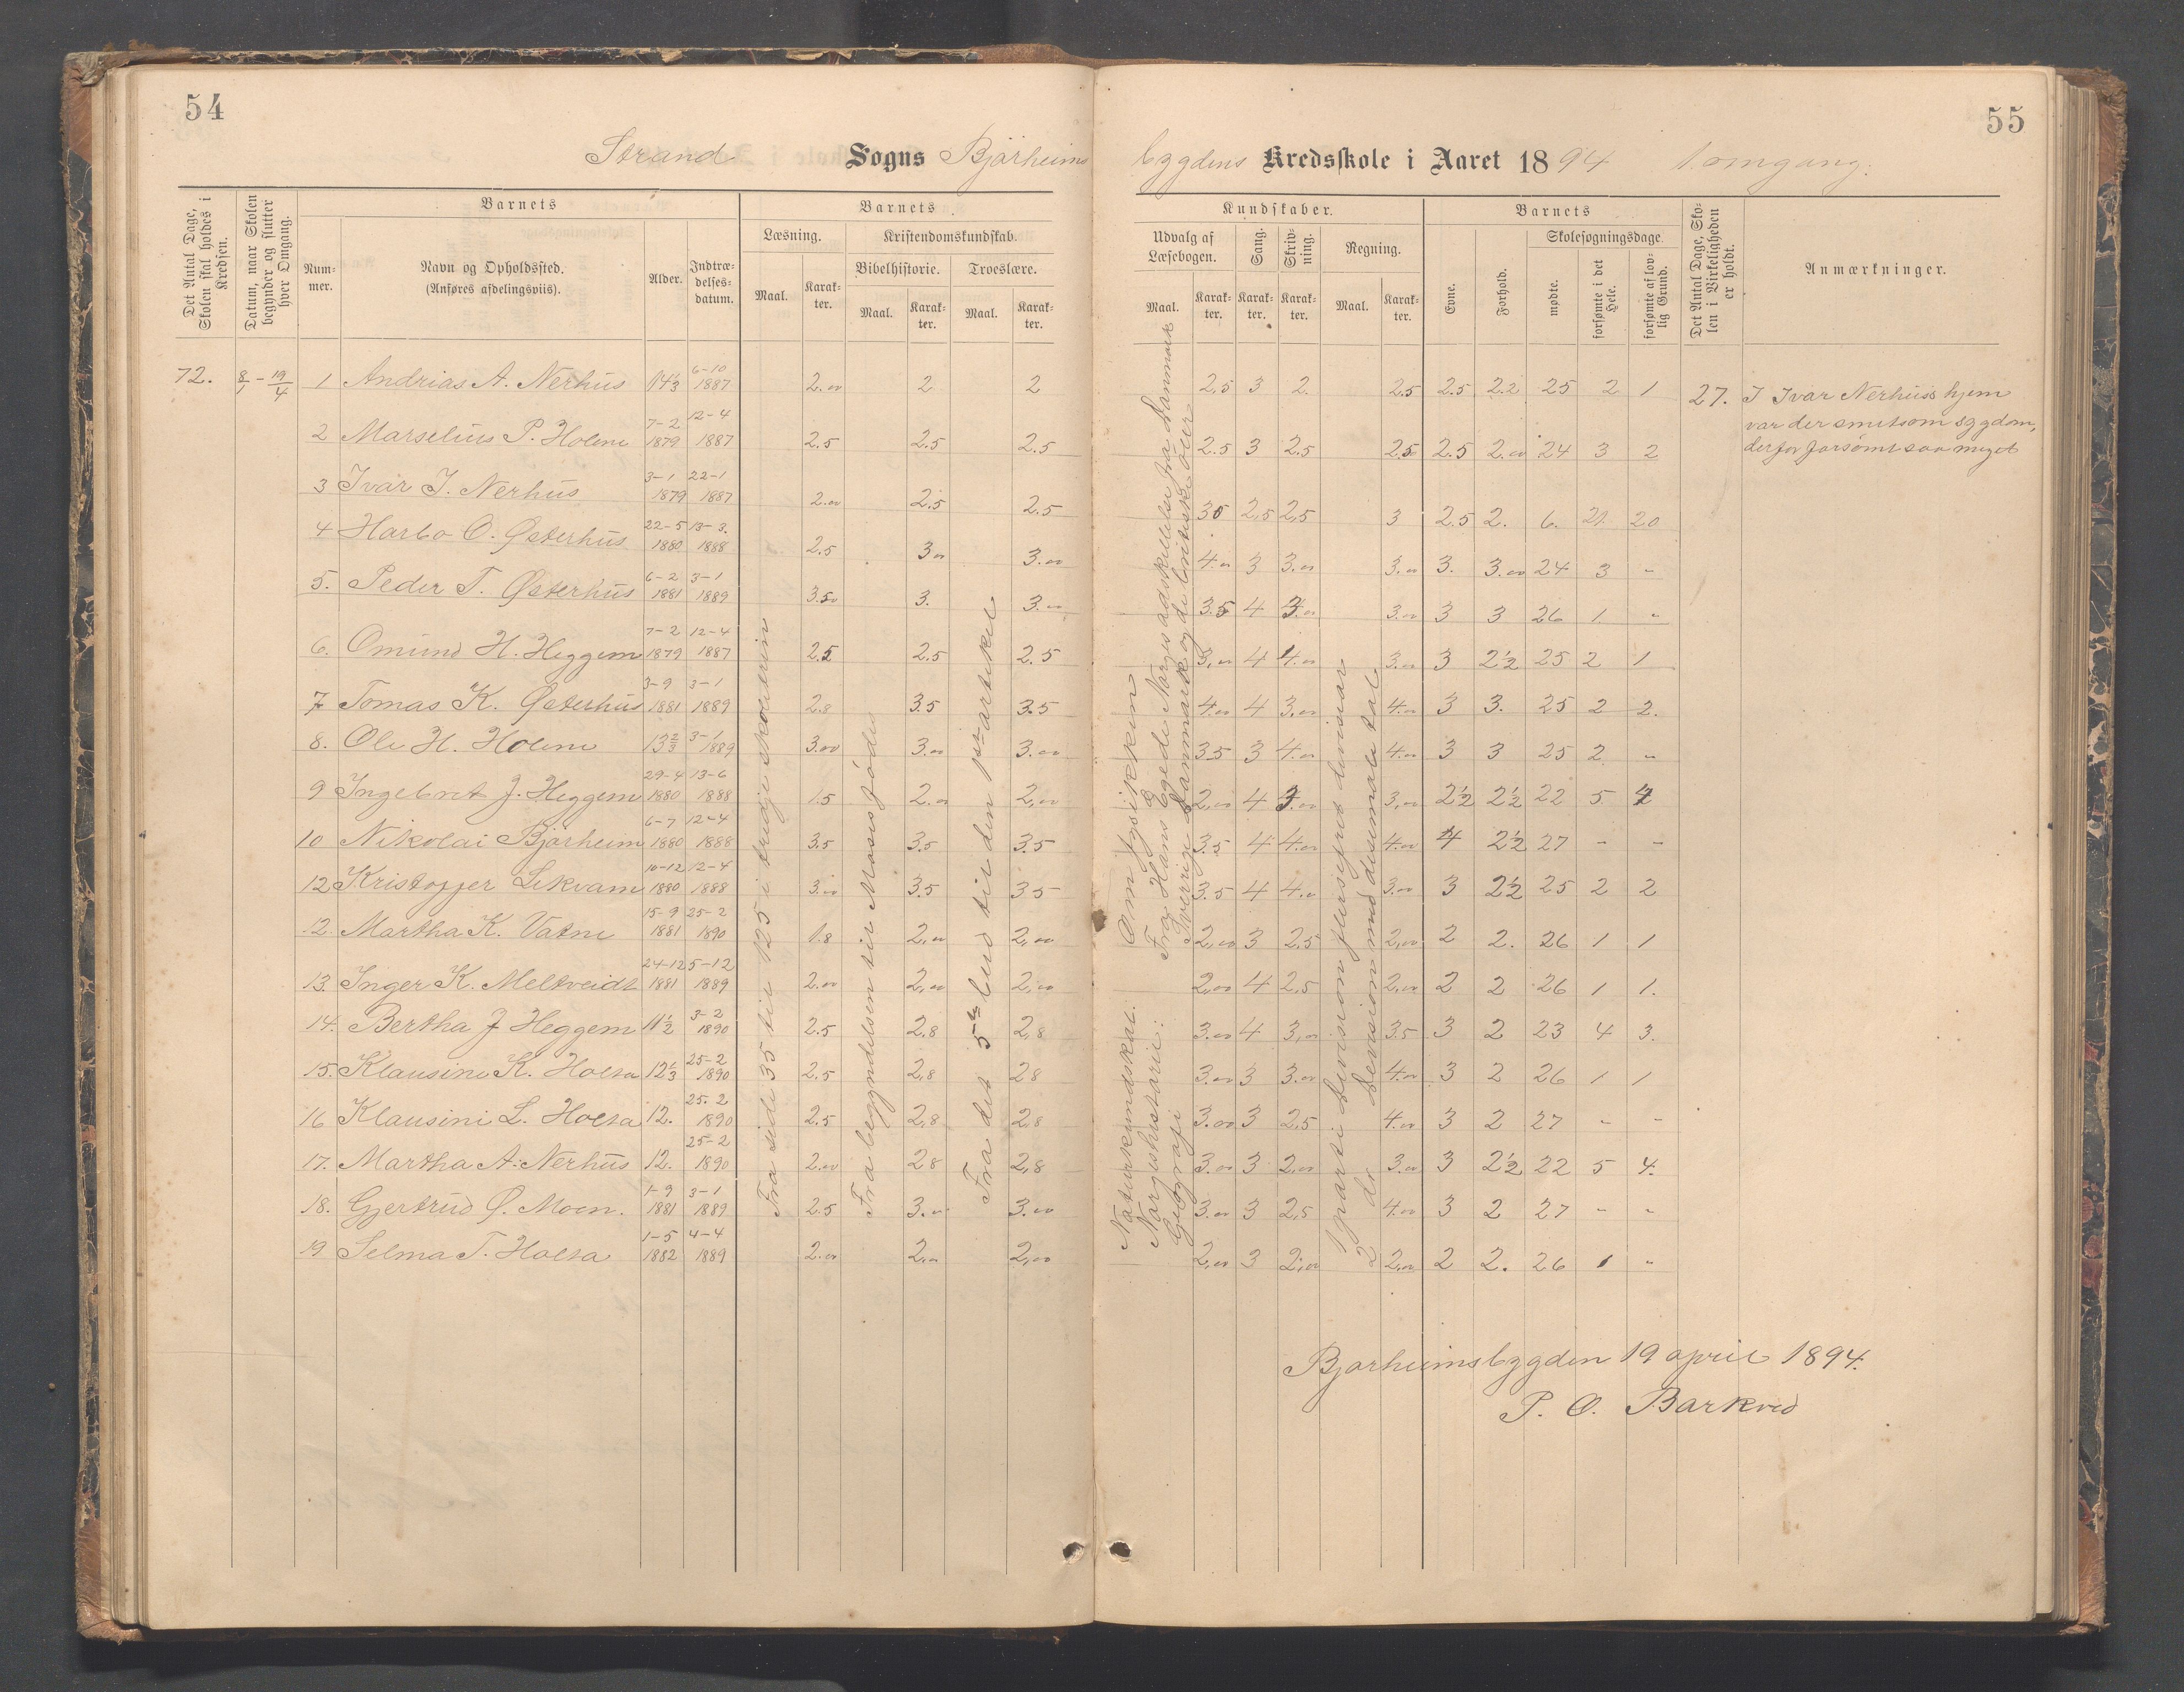 54
55
Strand Sogns Bjørheims
bygdens Kredsskole i Aaret 1894 1 omgang.
Det Antal Dage, Skolen skal holdes i Kredsen.
Datum, naar Skolen begynder og slutter hver Omgang.
Barnets
Num-mer.
Navn og Opholdssted.
(Anføres afdelingsviis).
Alder.
Indtræ-delses-datum.
Barnets
Læsning.
Maal.
Karak-ter.
Kristendomskundskab.
Bibelhistorie.
Maal.
Karak-ter.
Troeslære.
Maal.
Karak-ter.
Kundskaber.
Udvalg af Læsebogen.
Maal.
Karak-ter.
Sang.
Karak-ter.
Skriv-ning.
Karak-ter.
Regning.
Maal.
Karak-ter.
Barnets
Evne.
Forhold.
Skolesøgningsdage.
mødte.
forsømte i det Hele.
forsømte af lov-lig Grund.
Det Antal Dage, Sko-len i Virkeligheden er holdt.
Anmærkninger.
72. 8/1 - 19/4
1 Andrias A. Nerhus 14 1/3 6-10 1887 2.00 2 2 2,5 3 2. 2.5 2.5 2.2 25 2 1 27.
2 Marselius P. Holme 7-2 1879 12-4 1887 2.5 2.5 2.5 2.5 3 2.5 2.5 2.5 2.00 24 3 2
3 Ivar I. Nerhus 3-1 1879 22-1 1887 2.00 2.5 2.5 35 2,5 2,5 3 2.5 2. 6. 21. 20
4 Harbo O. Østerhus 22-5 1880 13-3. 1888 2.5 3.00 3.00 4.00 3 3.00 3.00 3. 3.00 24 3 -
5. Peder T. Østerhus 6-2 1881 3-1 1889 3.50 3. 3.00 3.5 4 3.00 3.00 3 3 26 1 -
6. Omund H. Heggem 7-2 1879 12-4 1887 2.5 2.5 2.5 3,00 4 4.00 3.00 3 2 1/2 25 2 1
7 Tomas K. Østerhus 3-9 1881 3-1 1889 2.8 3.5 3.5 4.00 4 3,00 4.00 3 3. 25 2 2.
8. Ole H. Holme 13 2/3 3-1 1889 3.00 3.00 3.00 3.5 3 4.00 4.00 3 3 25 2 -
9 Ingebret J. Heggem 29-4 1880 13-6 1888 1.5 2.00 2,00 2,00 4 3.00 3,00 2 1/2 2 1/2 22 5 4
10 Nikolai Bjørheim 6-7 1880 12-4 1888 3.5 3.5 3.5 3.5 4 4.00 4.00 4 2 1/2 27 - -
12 Kristoffer Lekvam 10-12 1880 12-4 1888 3.00 3.5 35 3.5 4 4.00 3.00 3 2 1/2 25 2 2
12 Martha K. Vatne 15-9 1881 25-2 1890 1.8 2,00 2,00 2,00 3 2.5 2,00 2 2. 26 1 1
13. Inger K. Meltveidt 24-12 1881 5-12 1889 2.00 2,00 2,00 2,00 4 2,5 2,00 2 2 26 1 1.
14. Bertha J Heggem 11 1/2 3-2 1890 2.5 2.8 2,8 3.00 4 3,00 3.5 3 2 23 4 3.
15. Klausine K. Holta 12 1/3 25-2 1890 2,5 2,8 28 3.00 3 3.00 4.00 3 2 26 1 1
16 Klausini L. Holta 12. 25.2 1890 2.5 2,8 2,8 3.00 3 2,5 4.00 3 2 27 - -
17. Martha A. Nerhus 12. 25-2 1890 2.00 28 2,8 3.00 3 2,00 3.00 3 2 1/2 22 5 4.
18. Gjertrud Ø. Moen. 1-9 1881 3-1 1889 2.5 3.00 3.00 3.00 3 2,5 4.00 3 2 27 - -
19 Selma T. Holta 1-5 1882 4-4 1889 2.00 2,00 2,00 2,00 3 2,00 2,00 2 2. 26 1 -
Fra side 35 til 125 i tredje skoletrin
Fra begyndelsen til Moses fødes
Fra det 5te bud til den 1ste artikel
Naturkundskab: Om fysikken
Norgeshistorie: Fra Hans Egede Norges adskillelse fra Danmark
Geografi Sverrige Danmark og de britiske øer
1 parti Devision flersifret devisor
2 do Devision med desimale tal
I Ivar Nerhuss hjem
var der smitsom sygdom,
derfor forsømt saa meget
Bjørheimsbygden 19 april 1894.
P. O. Barkved